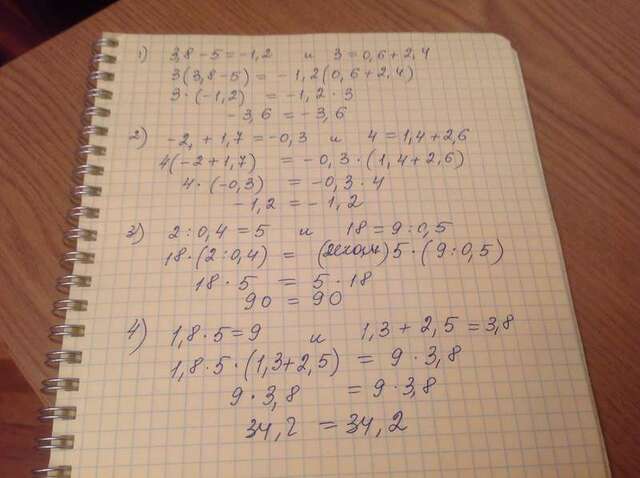 1) 3,8 - 5 = -1,2 и 3 = 0,6 + 2,4
3(3,8 - 5) = -1,2(0,6 + 2,4)
3 · (-1,2) = -1,2 · 3
-3,6 = -3,6
2) -2, + 1,7 = -0,3 и 4 = 1,4 + 2,6
4(-2 + 1,7) = -0,3 · (1,4 + 2,6)
4 · (-0,3) = -0,3 · 4
-1,2 = -1,2
3) 2 : 0,4 = 5 и 18 = 9 : 0,5
18 · (2 : 0,4) = 5 · (9 : 0,5)
18 · 5 = 5 · 18
90 = 90
4) 1,8 · 5 = 9 и 1,3 + 2,5 = 3,8
1,8 · 5 · (1,3 + 2,5) = 9 · 3,8
9 · 3,8 = 9 · 3,8
34,2 = 34,2